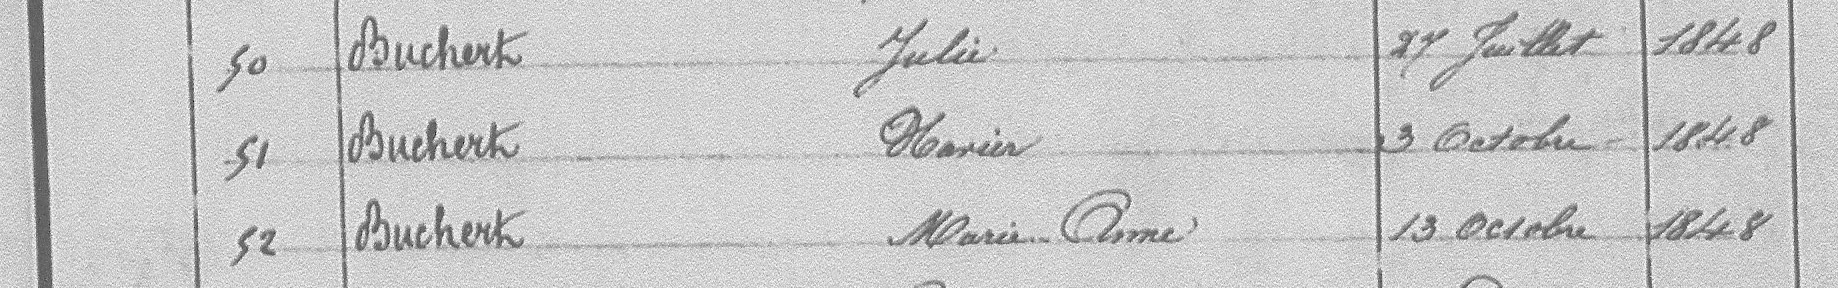 50 Buchert Julie 27 Juillet 1848
51 Buchert Xavier 3 Octobre 1848
52 Buchert Marie Anne 13 Octobre 1848